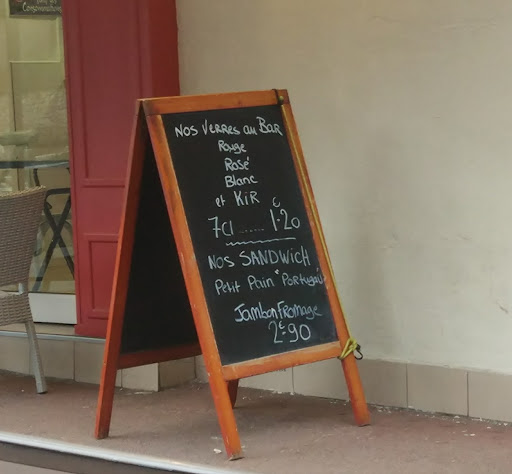 Consommations
Nos Verres au Bar
Rouge
Rosé
Blanc
et KiR
7cl ....... 1€20
Nos SANDWICH
Petit Pain "Portugais
Jambon Fromage
2€90